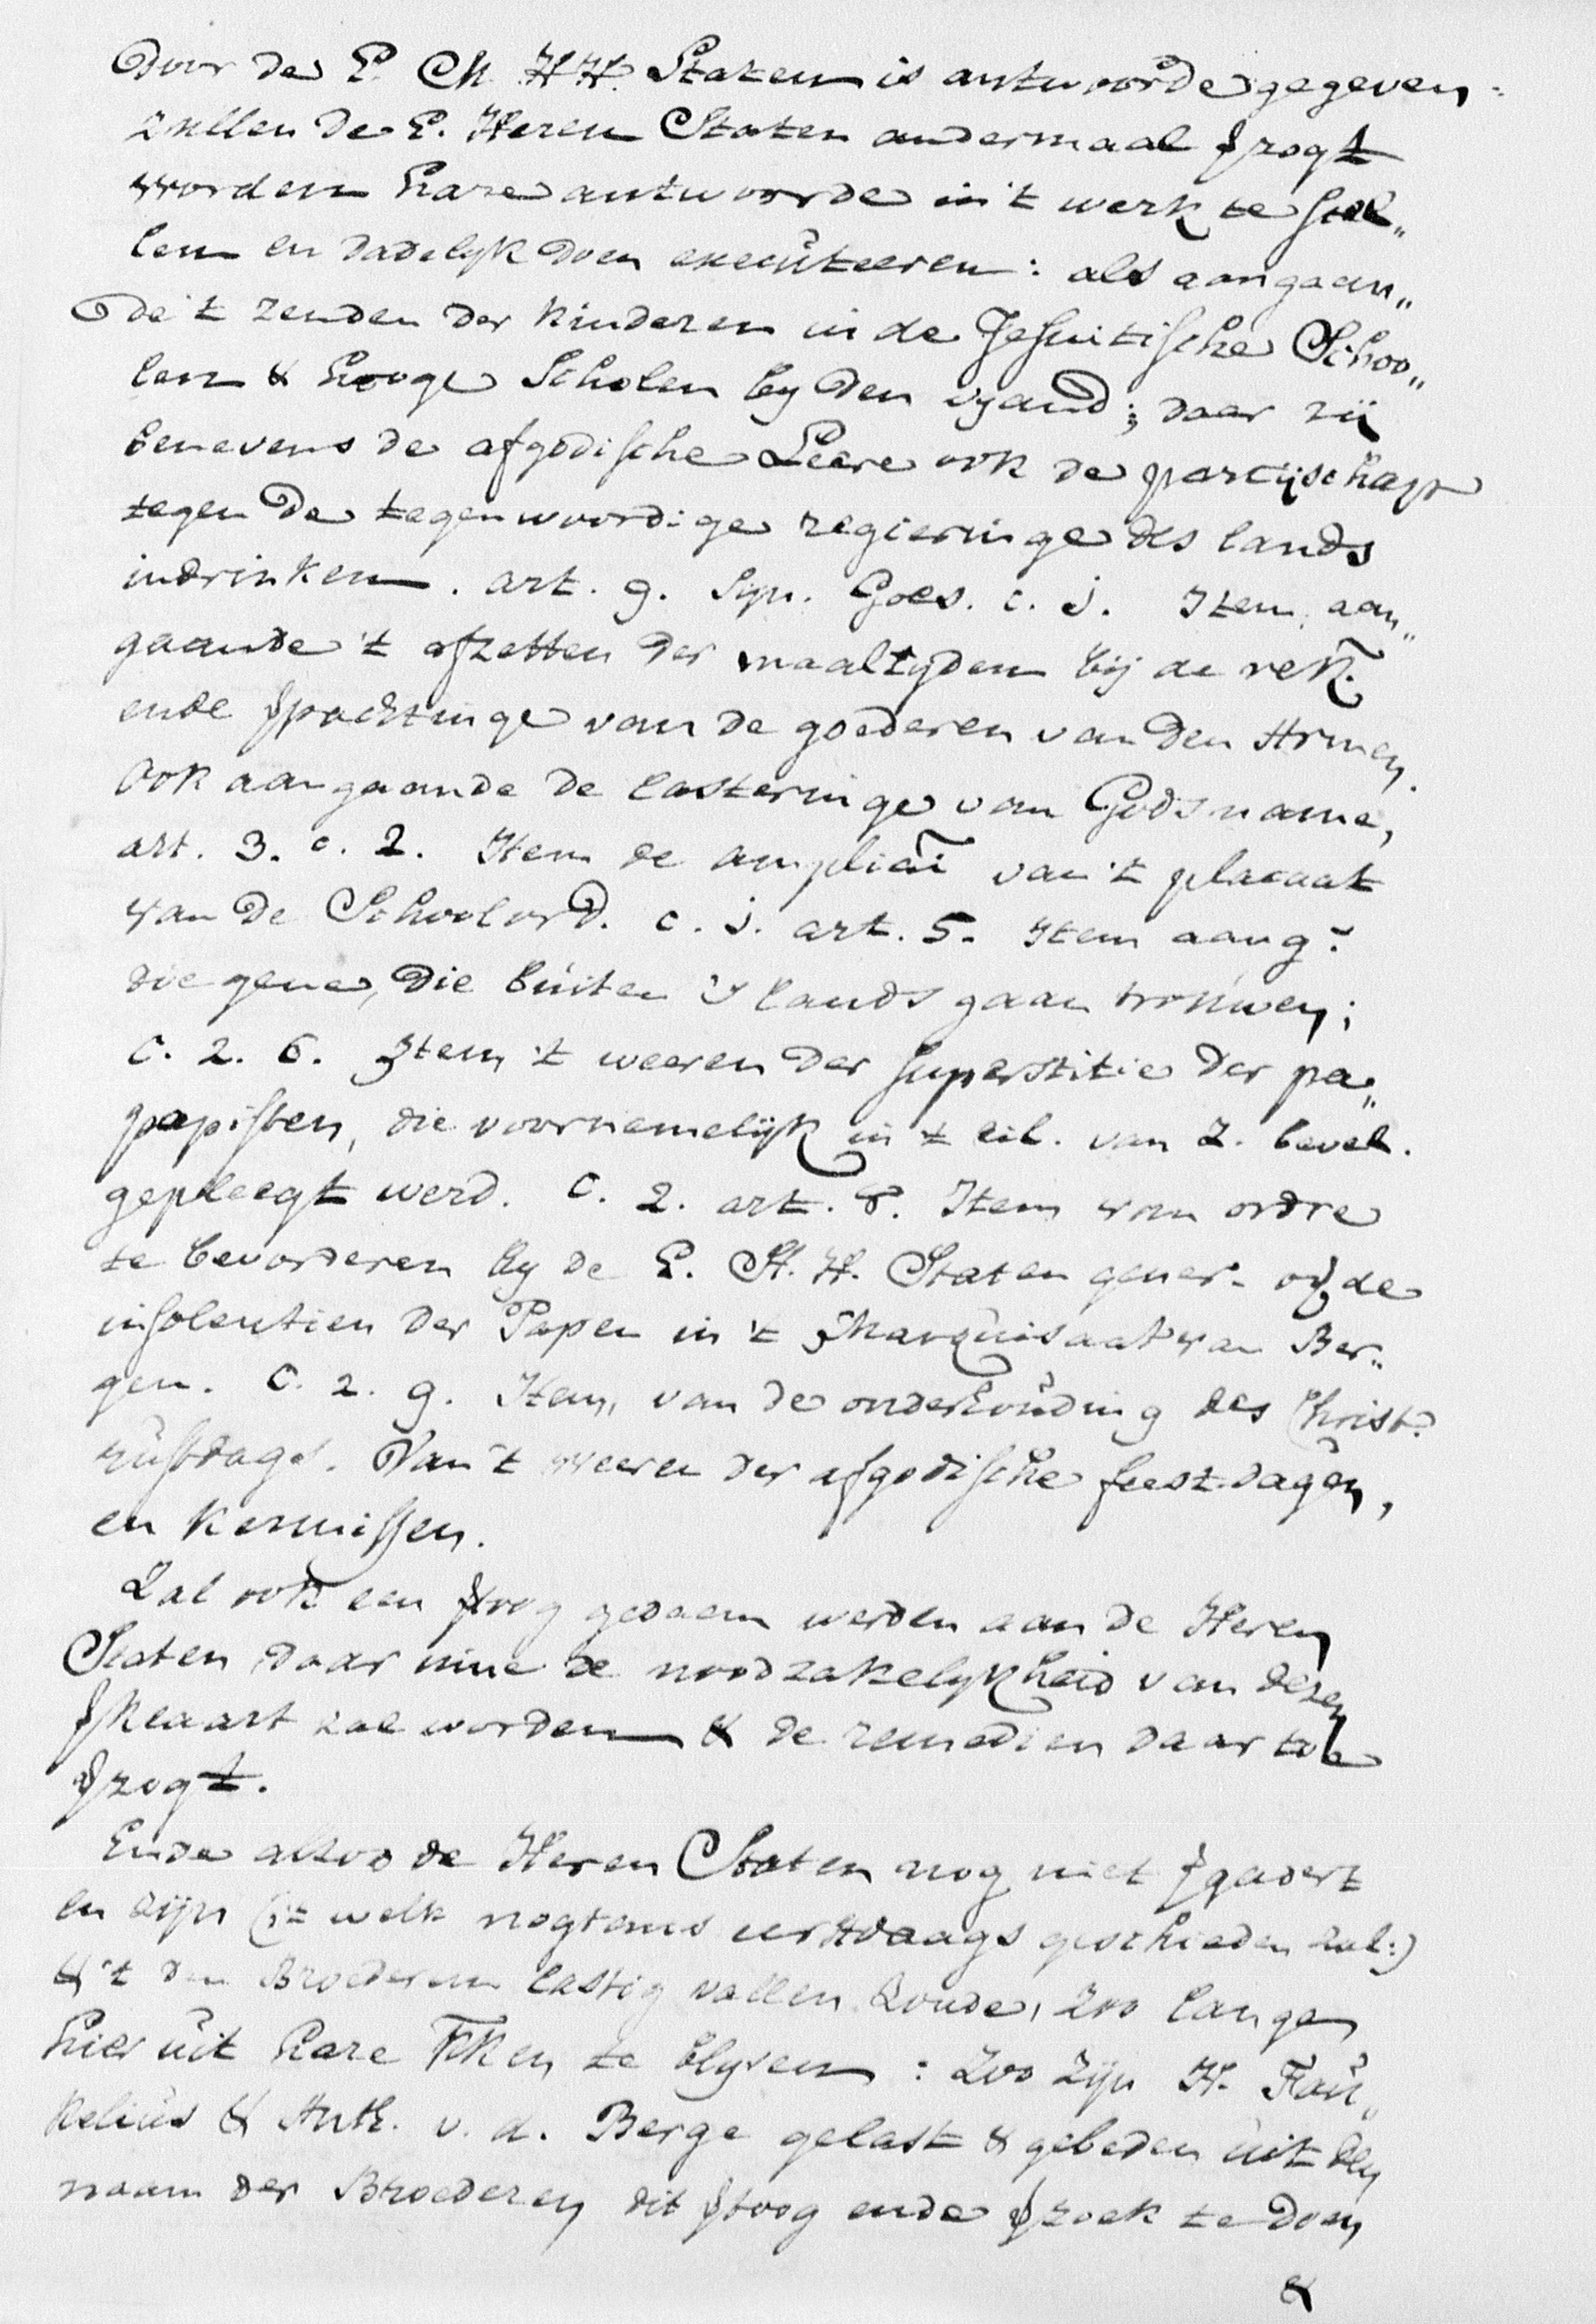 Door de E. M. HH. Staten is antwoorde gegeven:
zullen de E. Heren Staten andermaal ꝟzogt
worden hare antwoorde in 't werk te stel„
len en dadelyk doen executeeren: als aangaan„
de 't zenden der kinderen in de Jesuitische Schoo„
len & hooge Scholen by den vyand; daar zij
benevens de afgodische Leere ook de partijschap
tegen de tegenwoordige regieringe des lands
indrinken. art. 9. Syn. Goes. c. j. Item, aan„
gaande 't afzetten der maaltyden bij de rek.
ende ꝟpachtinge van de goederen van den Armen.
Ook aangaande de lasteringe van Gods name,
art. 3. c. 2. Item de ampliaĩ van 't placaat
van de Schoolord. c. j. art. 5. Item aang.
die gene, die buiten 's lands gaan trouwen;
C. 2. 6. Item 't weeren der superstitie der pa„
papisten, die voornemelijk in 't eil. van Z. bevel.
gepleegt werd. C. 2. art. 8. Item van ordre
te bevorderen by de E. H. H. Staten gener. op de
insolentien der Papen in 't Marquisaat van Ber„
gen. C. 2. 9. Item, van de onderhouding des Christ.
rustdags. Van 't weeren der afgodische feestdagen,
en kermissen.
Zal ook een ꝟtoog gedaen werden aan de Heren
Staten daar inne de noodzakelykheid van dezen
ꝟklaart zal worden & de remedien daar toe
ꝟzogt.
Ende alzoo de Heren Staten nog niet ꝟgadert
en zijn (:'t welk nogtans eerstdaags geschieden zal:)
& 't den Broederen lastig vallen zoude, zoo lange
hier uit hare kken te blyven: Zoo zijn H. Fau„
kelius & Anth. v. d. Berge gelast & gebeden uit den
naam der Broederen dit ꝟtoog ende ꝟzoek te doen
&